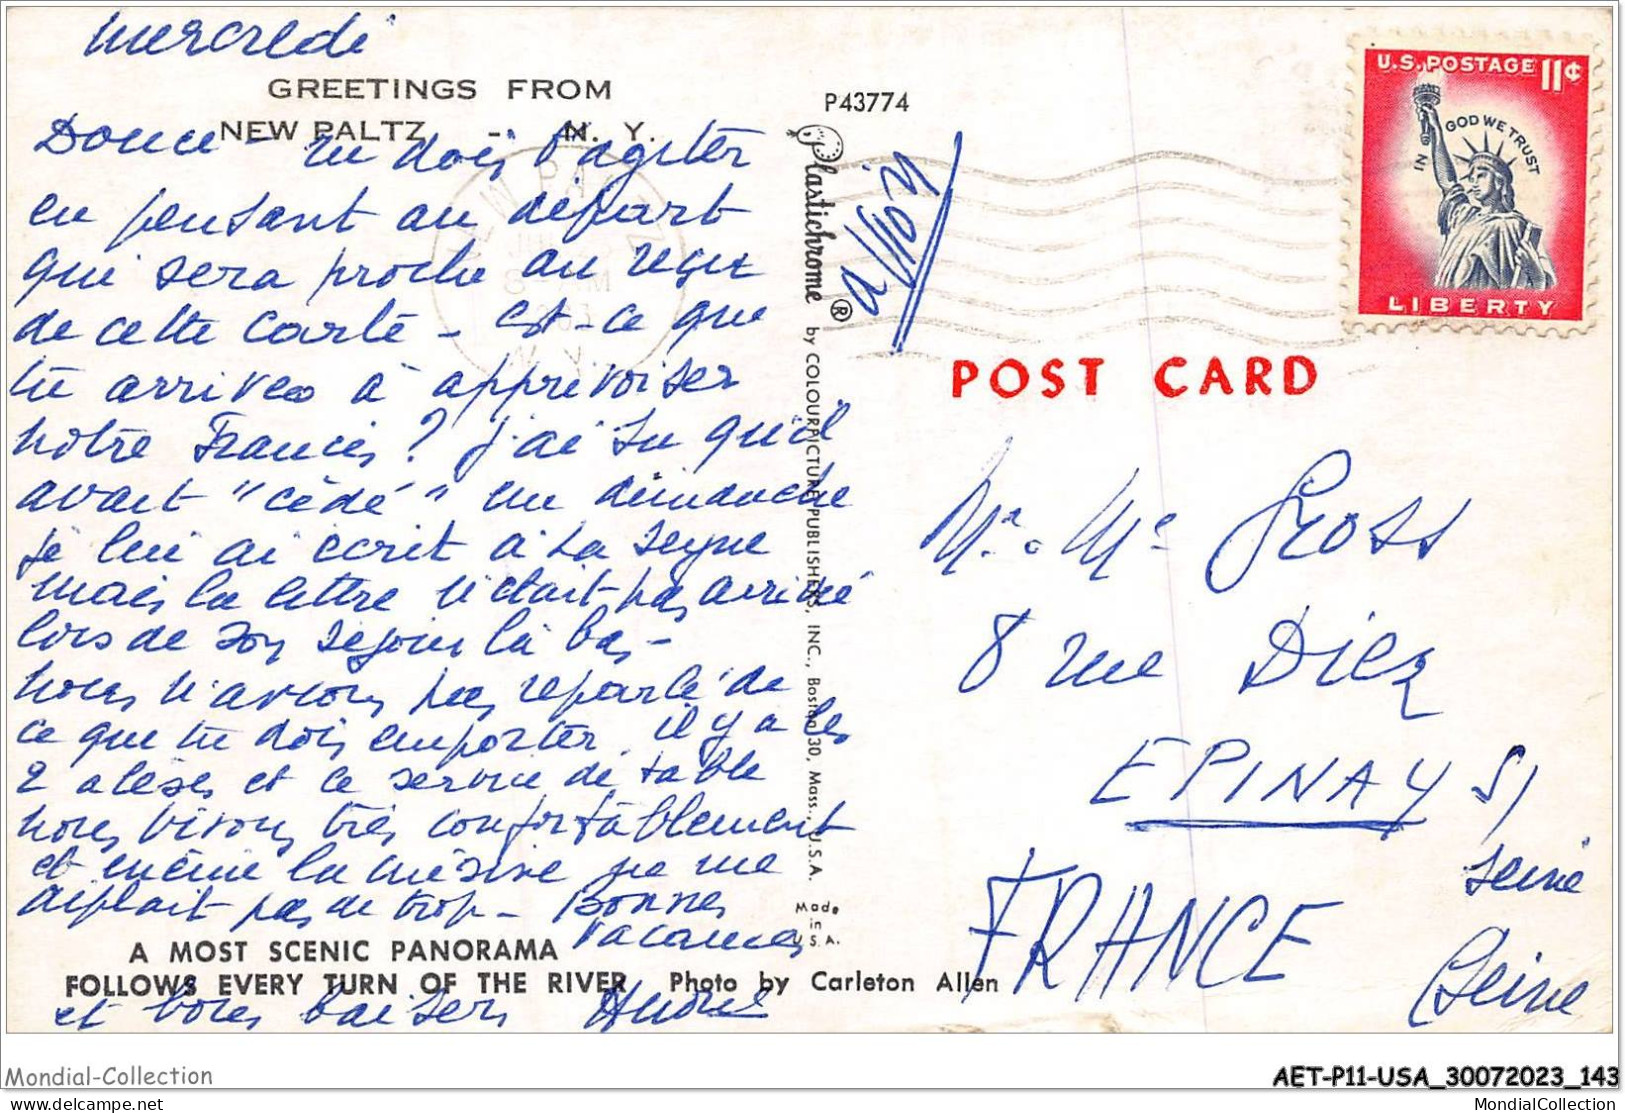 mercredi
GREETINGS FROM
NEW PALTZ - N. Y.
Douce - tu dois t'agiter
en pensant au départ
qui sera proche au reçu
de cette carte - est-ce que
tu arrives à apprivoiser
notre Francis ? j'ai su qu'il
avait "cédé" un dimanche
je lui ai écrit à La Seyne
mais la lettre n'était pas arrivée
lors de son séjour là bas -
nous n'avions pas reparlé de
ce que tu dois emporter. il y a les
2 alèses et le service de table
nous vivons très confortablement
et même la cuisine ne me
déplait pas de trop - Bonnes
vacances
A MOST SCENIC PANORAMA
FOLLOWS EVERY TURN OF THE RIVER Photo by Carleton Allen
et bons baisers
P43774
Plastichrome ® by COLOURPICTURE PUBLISHERS, INC., Boston 30, Mass., U.S.A.
Made
in
U.S.A.
avion
NEW PALTZ
8 AM
N.Y.
U.S. POSTAGE 11¢
IN GOD WE TRUST
LIBERTY
POST CARD
Mr. Me Gross
8 rue Diez
EPINAY S/
Seine
FRANCE (Seine
Mondial-Collection
AET-P11-USA_30072023_143
delcampe.net
MondialCollection